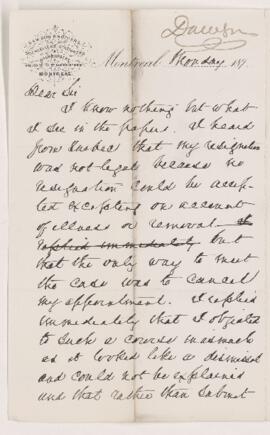 Dawson
DAWSON BROTHERS,
MONTREAL.
Montreal Monday 187
Dear Sir
I know nothing but what
I see in the papers. I heard
from Quebec that my resignation
was not legal because no
resignation could be accep-
ted excepting on account
of illness or removal. I
replied immediately but
that the only way to meet
the case was to cancel
my appointment. I replied
immediately that I objected
to such a course inasmuch
as it looked like a dismissal
and could not be explained
and that rather than submit